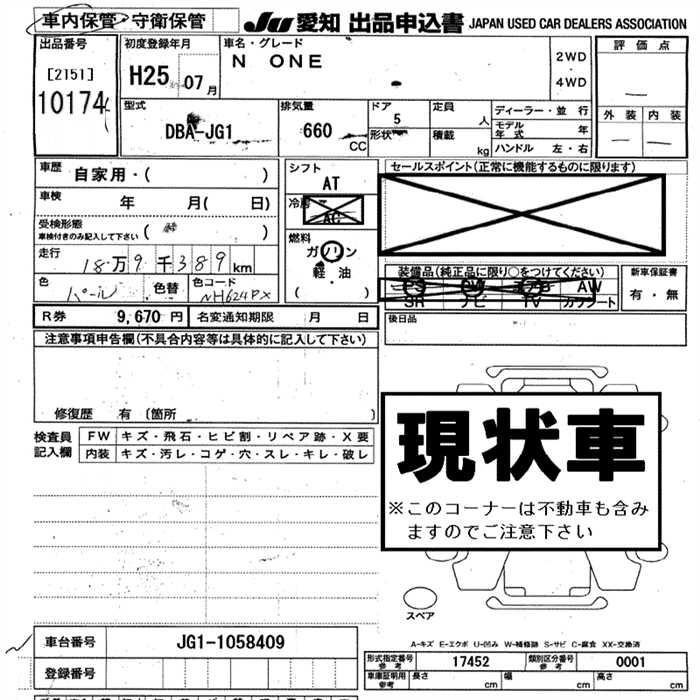 車内保管・守衛保管
JU 愛知 出品申込書 JAPAN USED CAR DEALERS ASSOCIATION
出品番号
[2151]
10174
初度登録年月
H25 07 月
車名・グレード
N ONE
2WD
・
4WD
評価点
外装 内装
型式
DBA-JG1
排気量
660
CC
ドア
5
形状
定員
人
積載
kg
ディーラー・並行
モデル年式 年
ハンドル 左・右
車歴
自家用・( )
車検
年 月( 日)
受検形態
車検付きのみ記入して下さい ( )
走行
18万9千389km
色
パール
色替
色コード
NH624PX
シフト
AT
冷房
AC
燃料
ガソリン
軽・油
( )
セールスポイント(正常に機能するものに限ります)
装備品(純正品に限り○をつけてください)
PS PW エアB AW
SR ナビ TV カワシート
新車保証書
有・無
R券 9,670 円 名変通知期限 月 日
後日品
注意事項申告欄(不具合内容等は具体的に記入して下さい)
修復歴 有 〔箇所 〕
検査員
記入欄
FW キズ・飛石・ヒビ割・リペア跡・X要
内装 キズ・汚レ・コゲ・穴・スレ・キレ・破レ
現状車
※このコーナーは不動車も含み
ますのでご注意下さい
スペア
A-キズ E-エクボ U-凹み W-補修跡 S-サビ C-腐食 XX-交換済
車台番号 JG1-1058409
登録番号
形式指定番号
参考
17452
類別区分番号
参考
0001
車庫証明用
参考
長さ cm 幅 cm 高さ cm